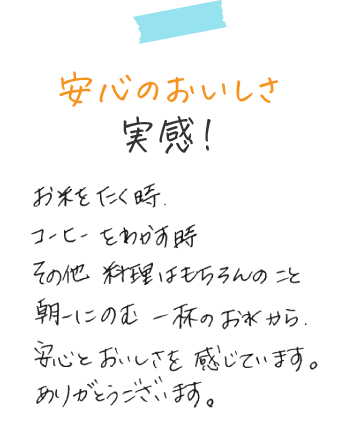 安心のおいしさ
実感!
お米をたく時.
コーヒーをわかす時
その他 料理はもちろんのこと
朝一にのむ 一杯のお水から.
安心とおいしさを 感じています。
ありがとうございます。